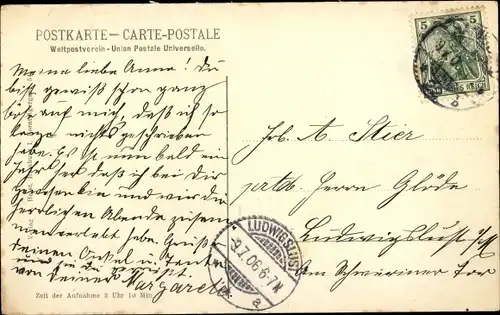 POSTKARTE — CARTE-POSTALE
Weltpostverein - Union Postale Universelle.
Meine liebe Anna! Du
bist gewiß schon ganz
bös auf mich, daß ich so
lange nichts geschrieben
habe. Es ist nun bald ein
Jahr her daß ich bei Dir
gewesen bin und wir die
herrlichen Abende zusam
men verlebt habe. Grüße
deinen Onkel u. Tante
und sei Du gegrüßt
von deiner Margareth.
Zeit der Aufnahme 2 Uhr 10 Min.
5 5
A. Stier
Herrn Glöde
Ludwigslust i/M
Am Schweriner Tor
LUDWIGSLUST
9.7.06.6-7N
a